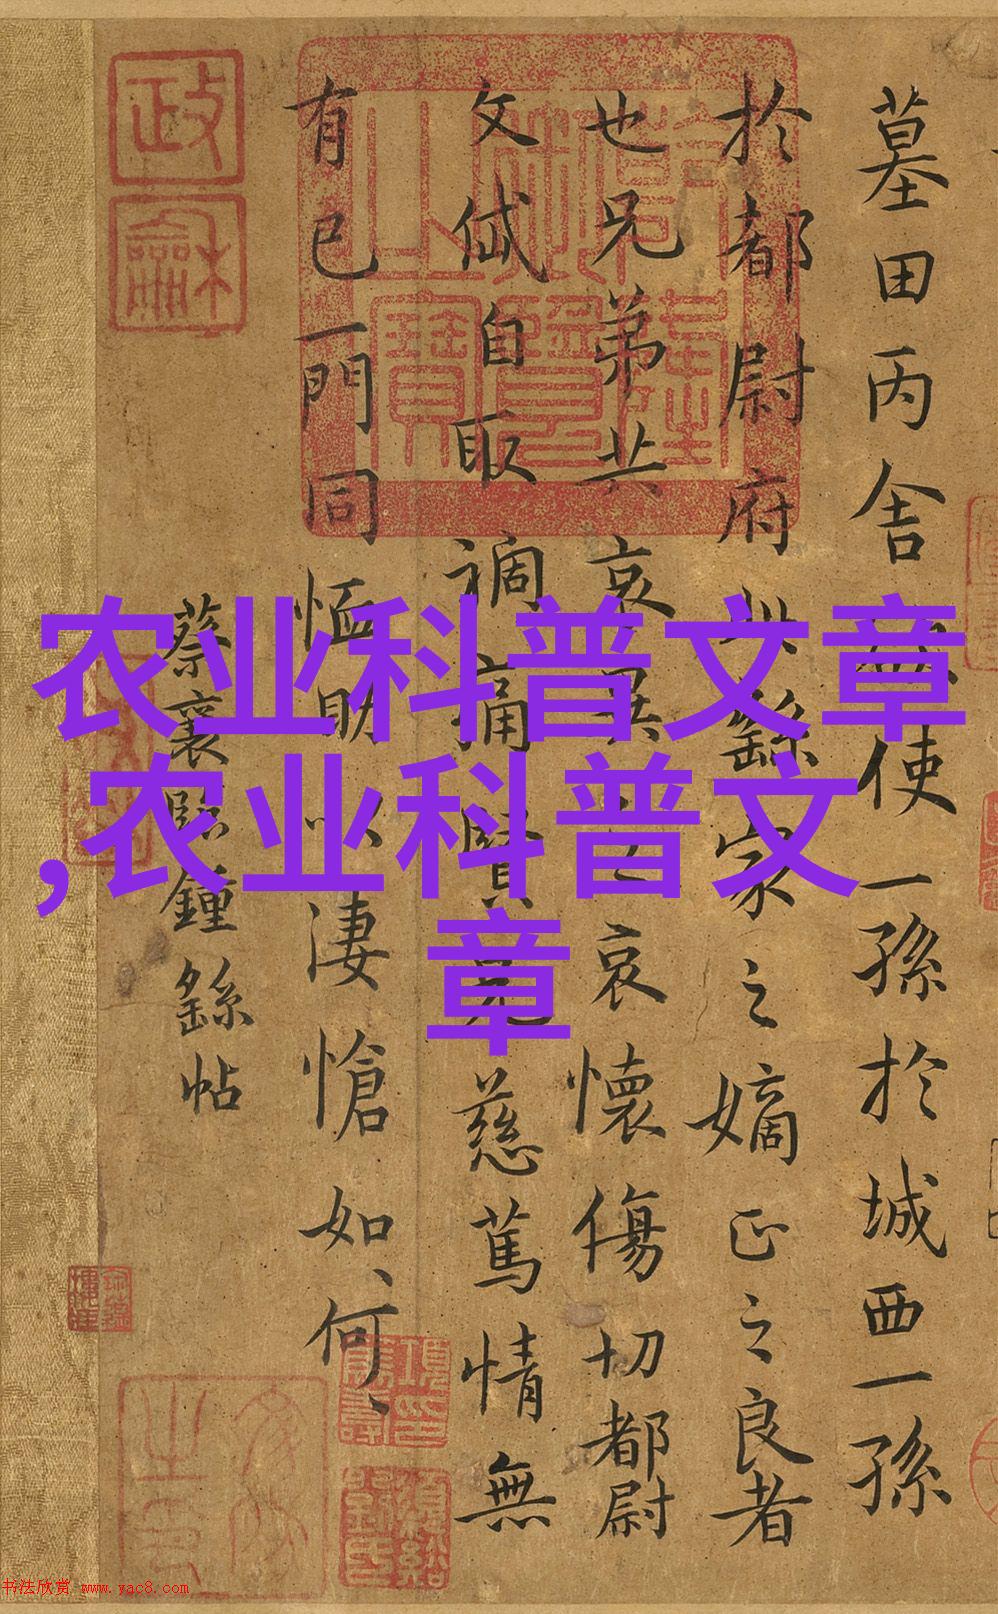 农业科普文章
,农业科普文
章
墓田丙舍使一孫於城西一孫
於都尉府此繇家之嫡正之良者
也兄弟共哀異哀懷傷切都尉
文岱自取禍痛賢兄慈篤情無
有已一門同恤助以淒愴如、何、
蔡襄臨鍾繇帖
政龢
书法欣赏 www.yac8.com